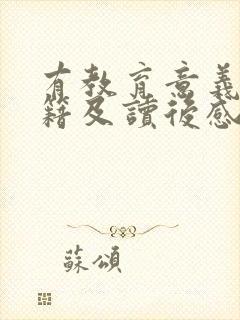 有教育意義
籍及讀後感
蘇頌